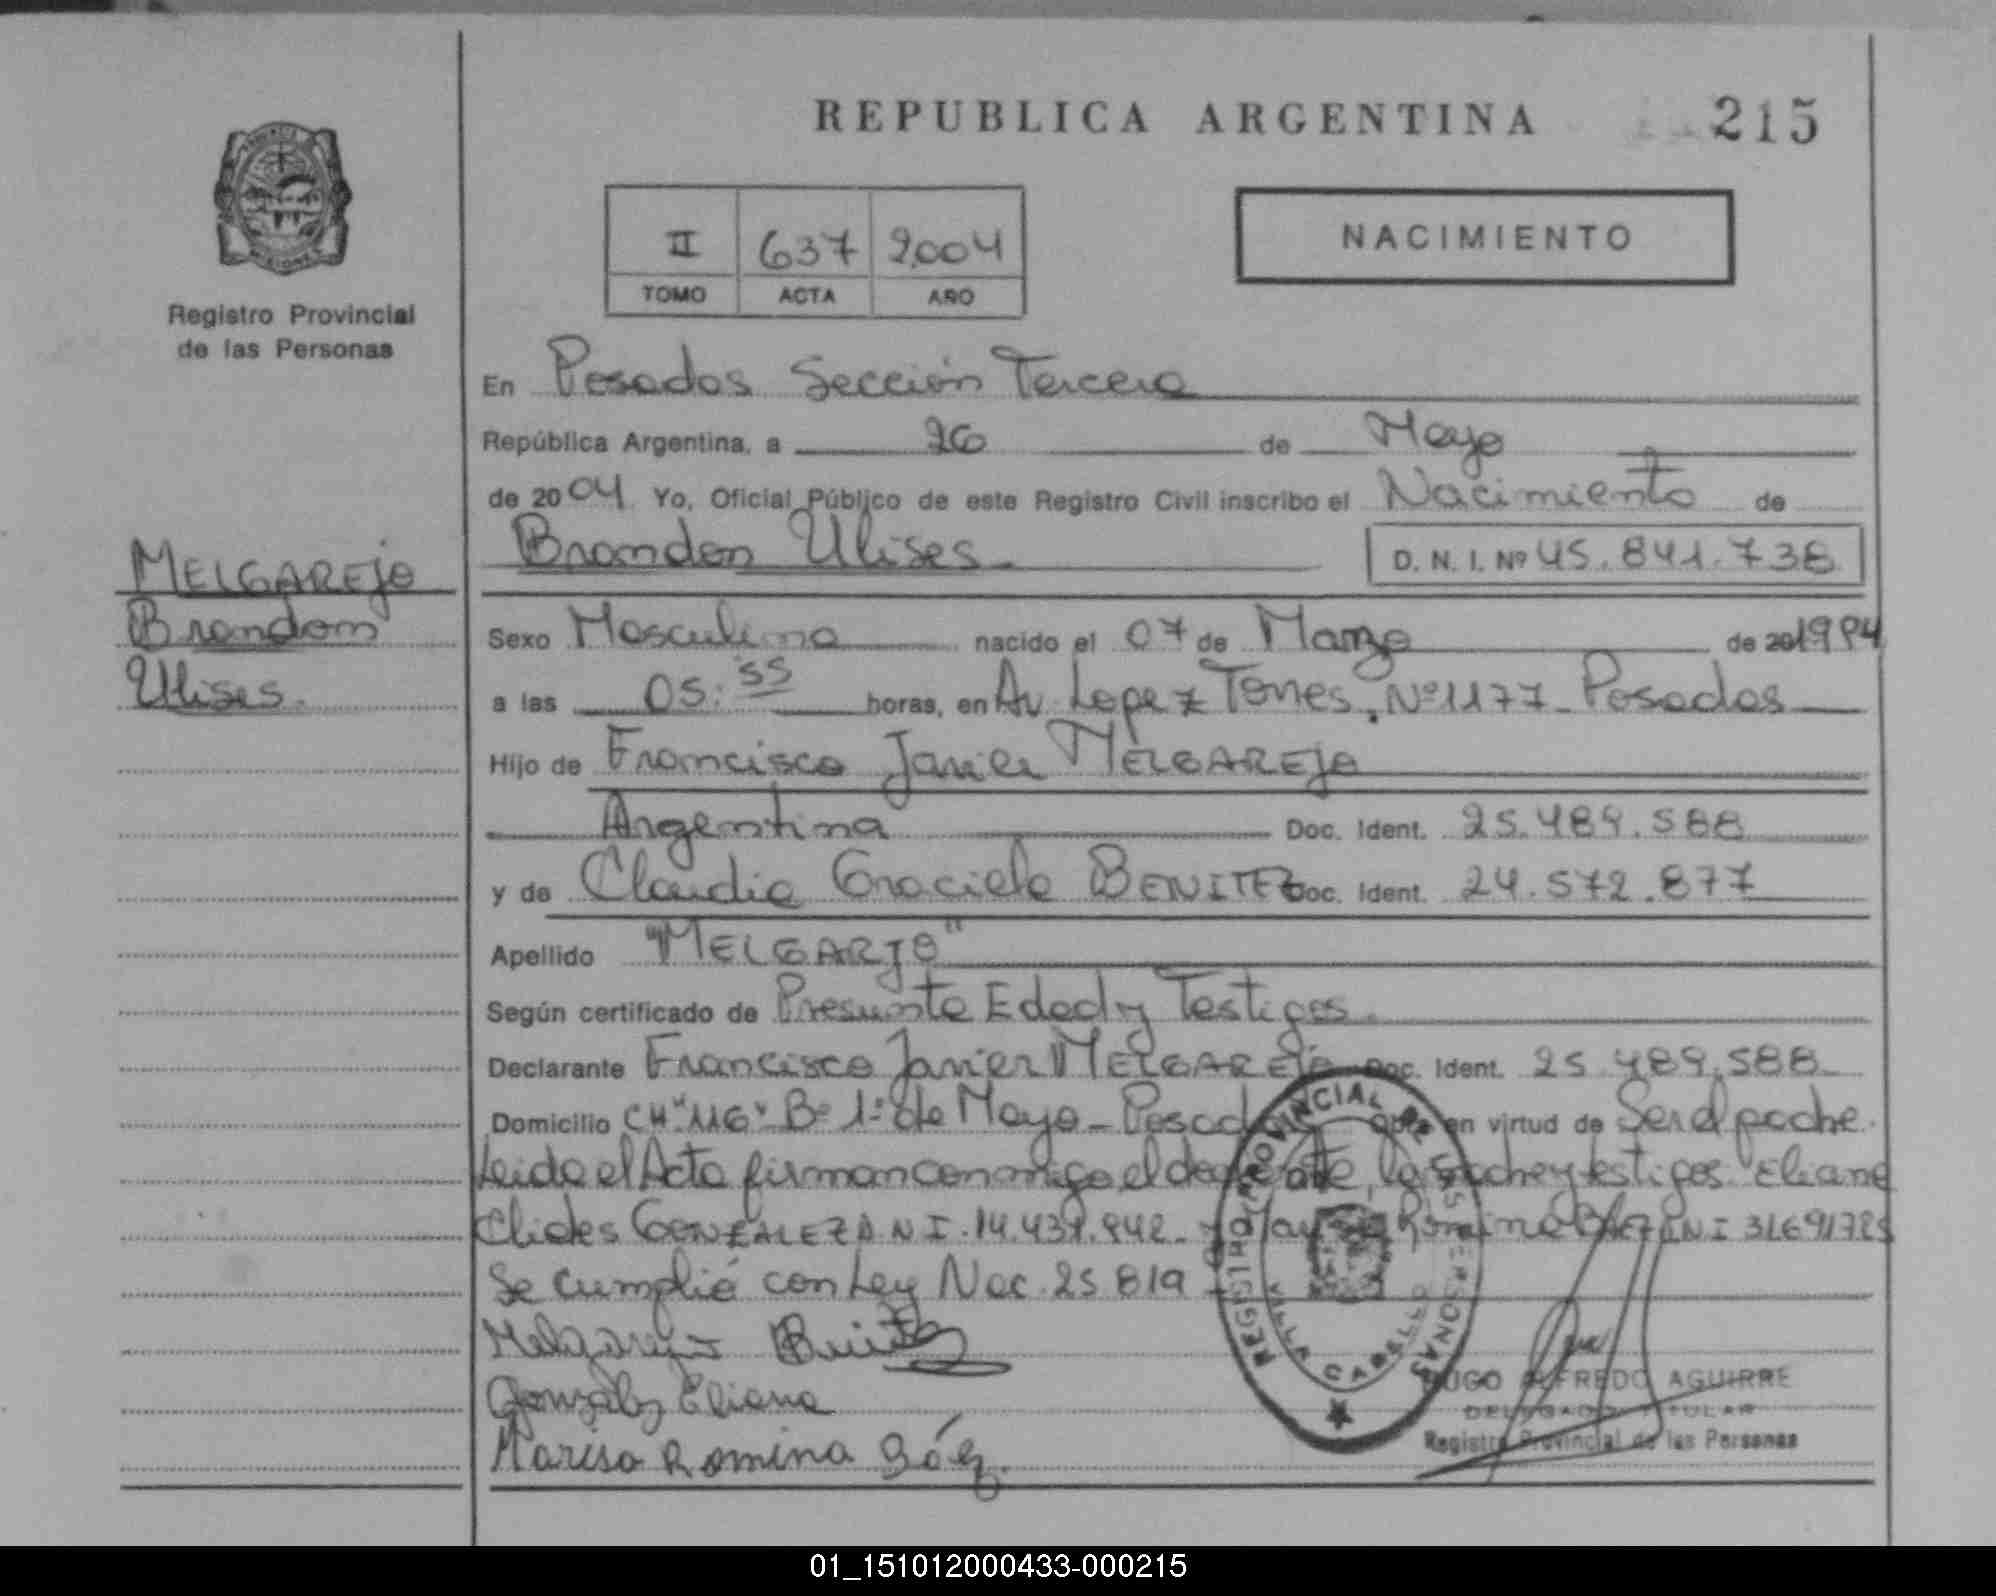 REPUBLICA ARGENTINA
215
PROVINCIA
MISIONES
Registro Provincial
de las Personas
II 637 2.004
TOMO ACTA AÑO
NACIMIENTO
En Posadas Sección Tercera
República Argentina, a 26 de Mayo
de 2004 Yo, Oficial Público de este Registro Civil inscribo el Nacimiento de
Brandon Ulises.
D. N. I. Nº 45.841.738
MELGAREJO
Brandon
Ulises.
Sexo Masculino nacido el 07 de Marzo de 20 1994
a las 05:55 horas, en Av. Lopez Torres, Nº 1177 - Posadas
Hijo de Francisco Javier MELGAREJO
Argentina Doc. Ident. 25.489.588
y de Claudia Graciela BENITEZ Doc. Ident. 24.572.877
Apellido "MELGARJO"
Según certificado de Presunta Edad y Testigos.
Declarante Francisco Javier MELGAREJO Doc. Ident. 25.489.588
Domicilio CH "116" Bº 1º de Mayo - Posadas Obra en virtud de Ser el padre.
Leida el Acta firman conmigo el declarante, la madre y testigos Eliana
Clides GONZALEZ D N I. 14.439.942 Romina BAEZ D N I 31691725
Se cumplió con Ley Nac. 25 819
Melgarejo Benitez
Gonzalez Eliana
Marisa Romina Báez.
REGISTRO PROVINCIAL DE LAS PERSONAS
VILLA CABELLO
HUGO ALFREDO AGUIRRE
DELEGADO TITULAR
Registro Provincial de las Personas
01_151012000433-000215